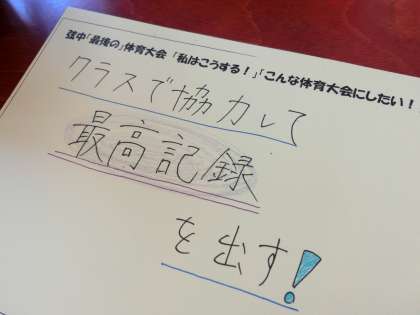 弦中「最後の」体育大会 「私はこうする！」「こんな体育大会にしたい！
クラスで協力して
最高記録
を出す！